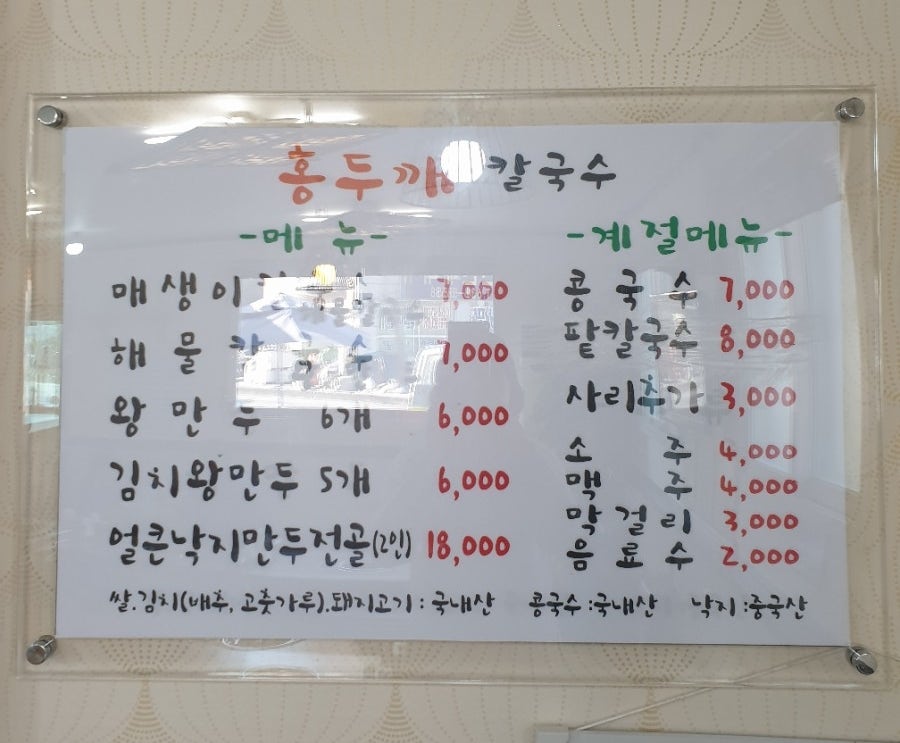 홍두깨 칼국수
-메 뉴-
매생이칼국수 7,000
해물칼국수 7,000
왕만두 6개 6,000
김치왕만두 5개 6,000
얼큰낙지만두전골(2인) 18,000
-계절메뉴-
콩국수 7,000
팥칼국수 8,000
사리추가 3,000
소주 4,000
맥주 4,000
막걸리 3,000
음료수 2,000
쌀.김치(배추, 고춧가루).돼지고기 : 국내산 콩국수 :국내산 낙지 :중국산